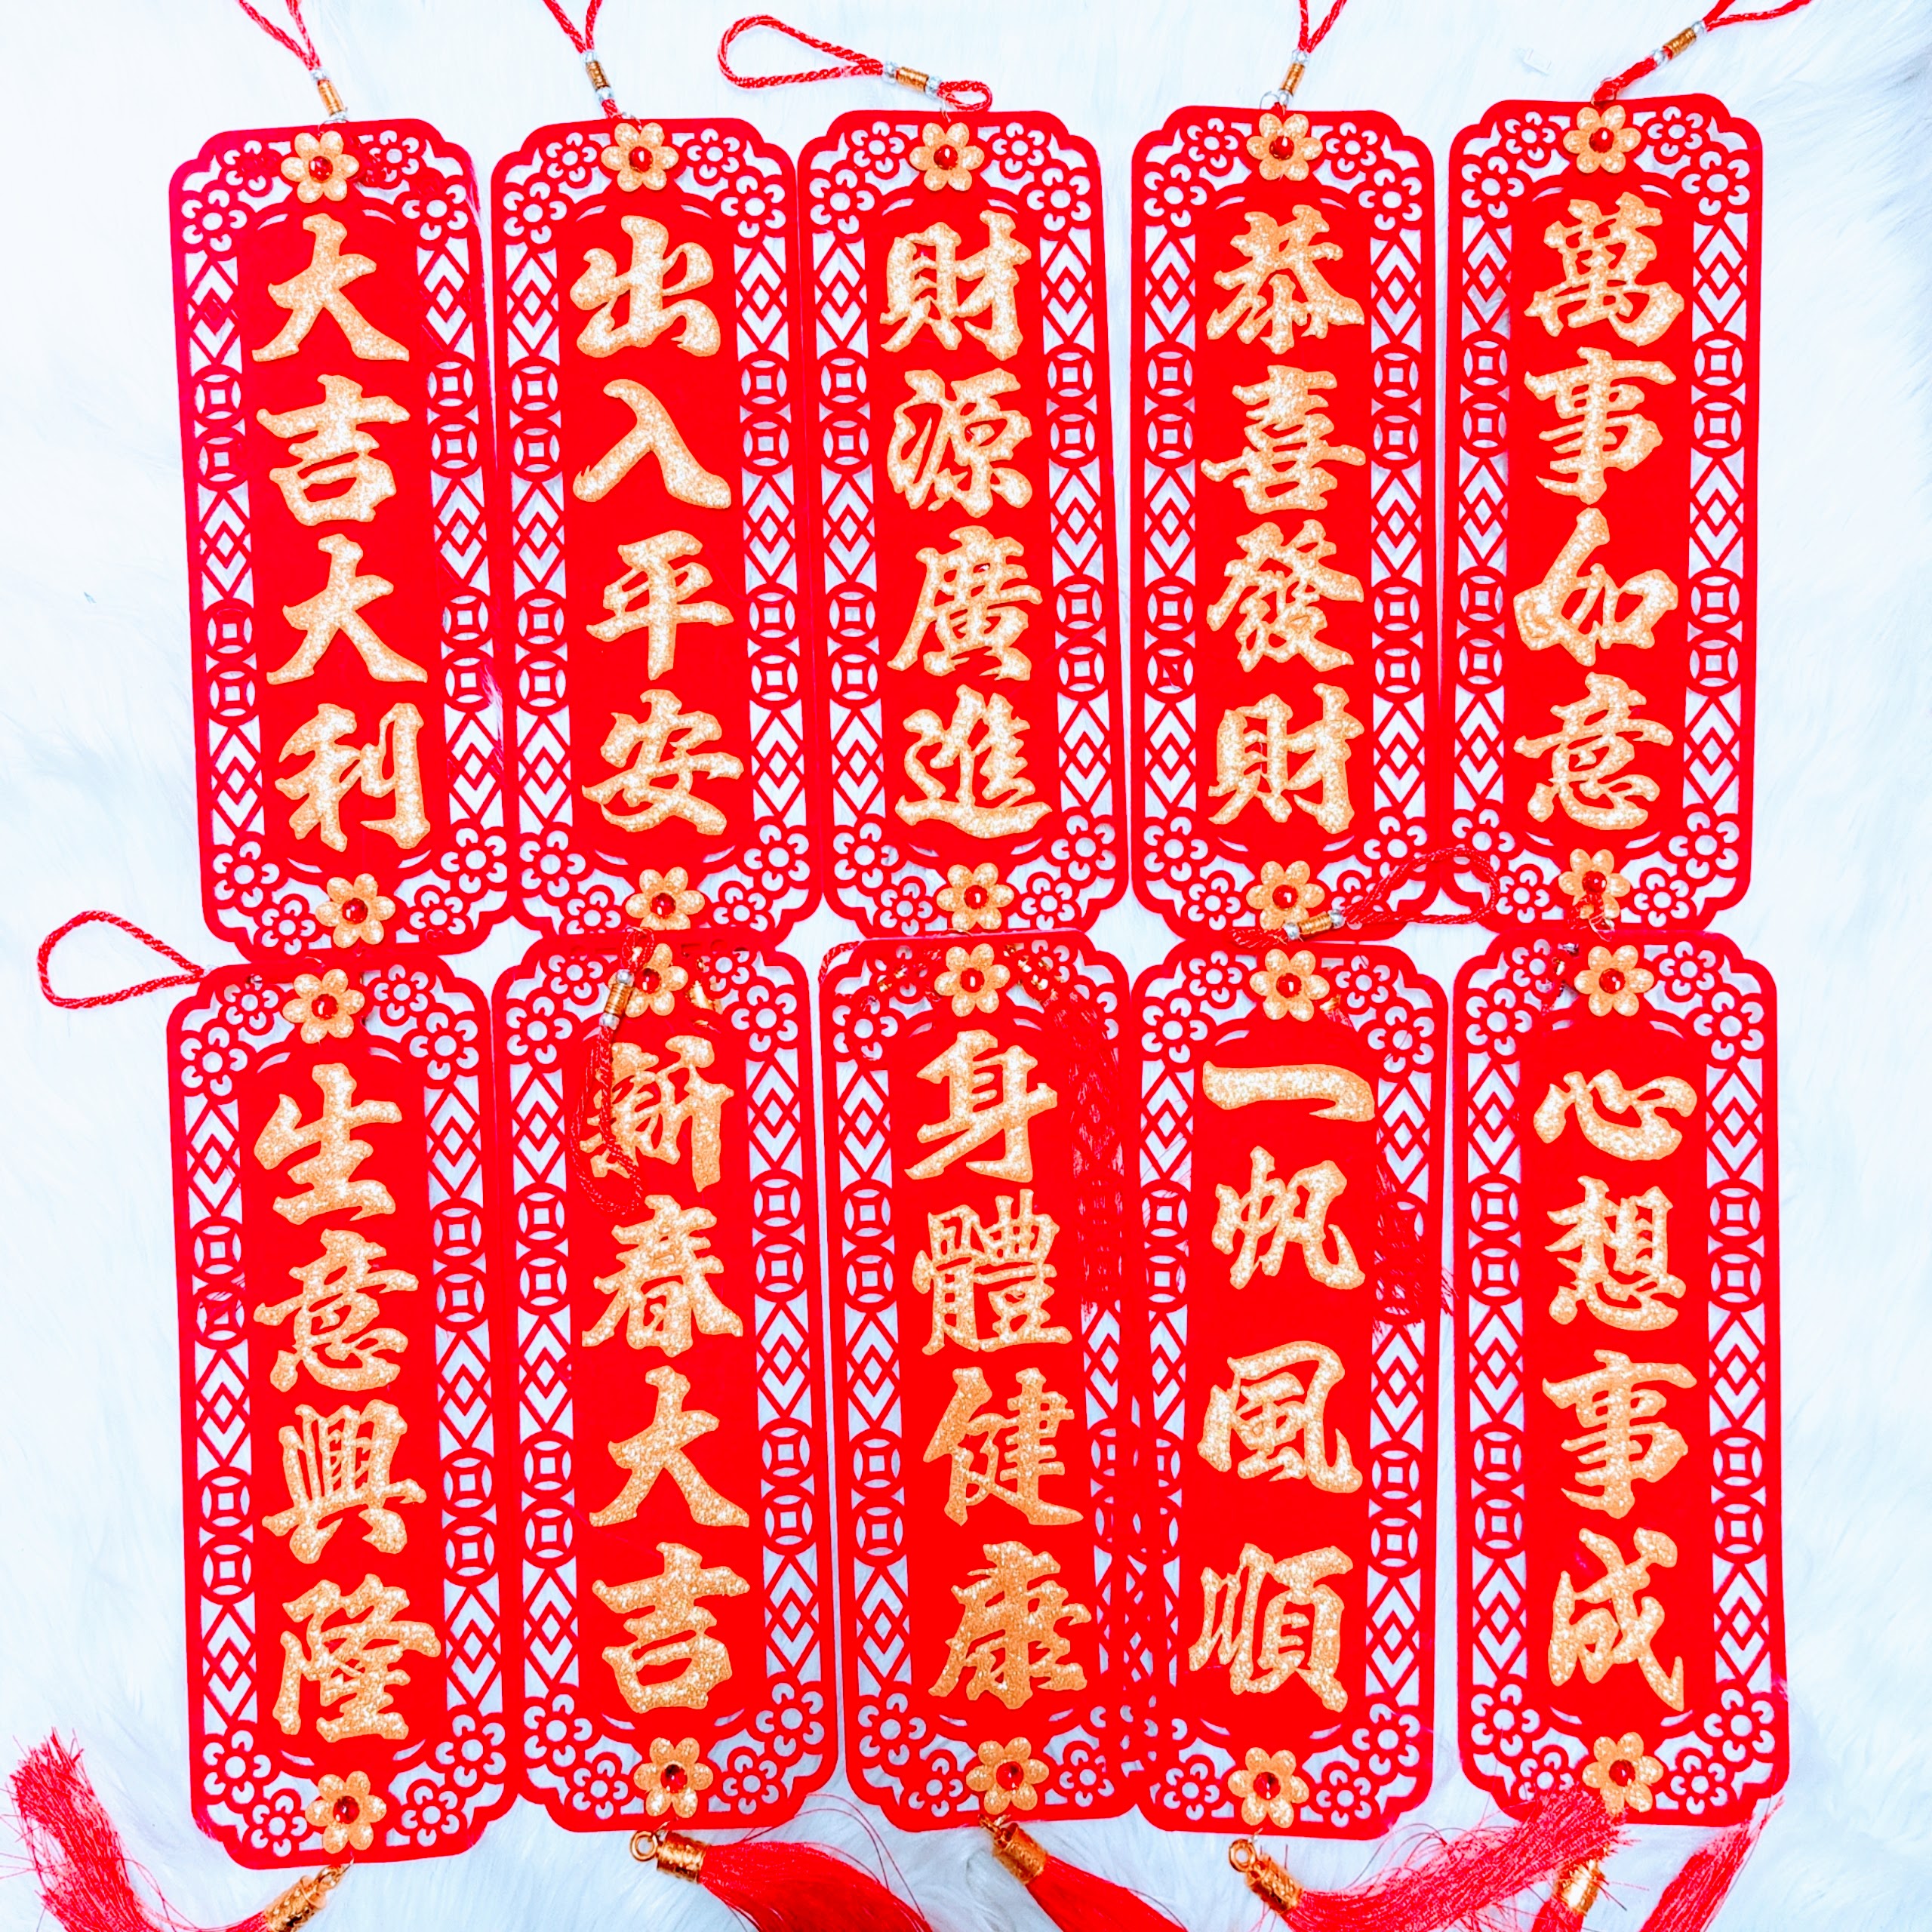 大吉大利
出入平安
財源廣進
恭喜發財
萬事如意
生意興隆
新春大吉
身體健康
一帆風順
心想事成